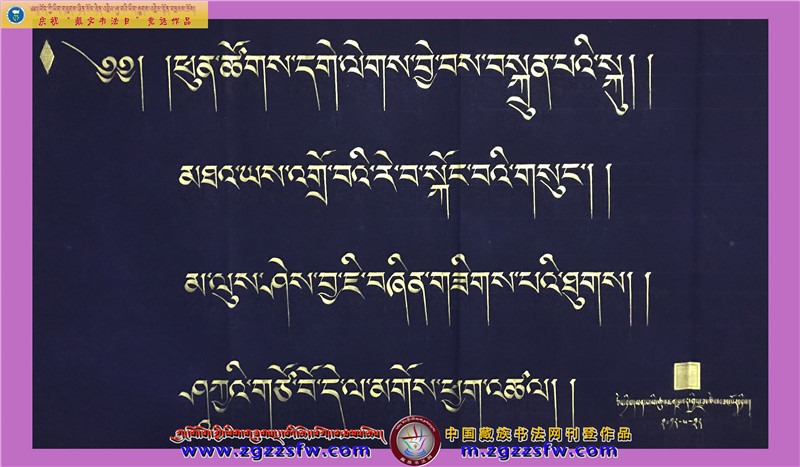 庆祝“藏文书法日”竞选作品
༄༅། །ཕུན་ཚོགས་དགེ་ལེགས་བྱེ་བས་བསྐྲུན་པའི་སྐུ། །
མཐའ་ཡས་འགྲོ་བའི་རེ་བ་སྐོང་བའི་གསུང་། །
མ་ལུས་ཤེས་བྱ་ཇི་བཞིན་གཟིགས་པའི་ཐུགས། །
ཤཱཀྱའི་གཙོ་བོ་དེ་ལ་མགོས་ཕྱག་འཚལ། །
中国藏族书法网刊登作品
www.zgzzsfw.com
m.zgzzsfw.com